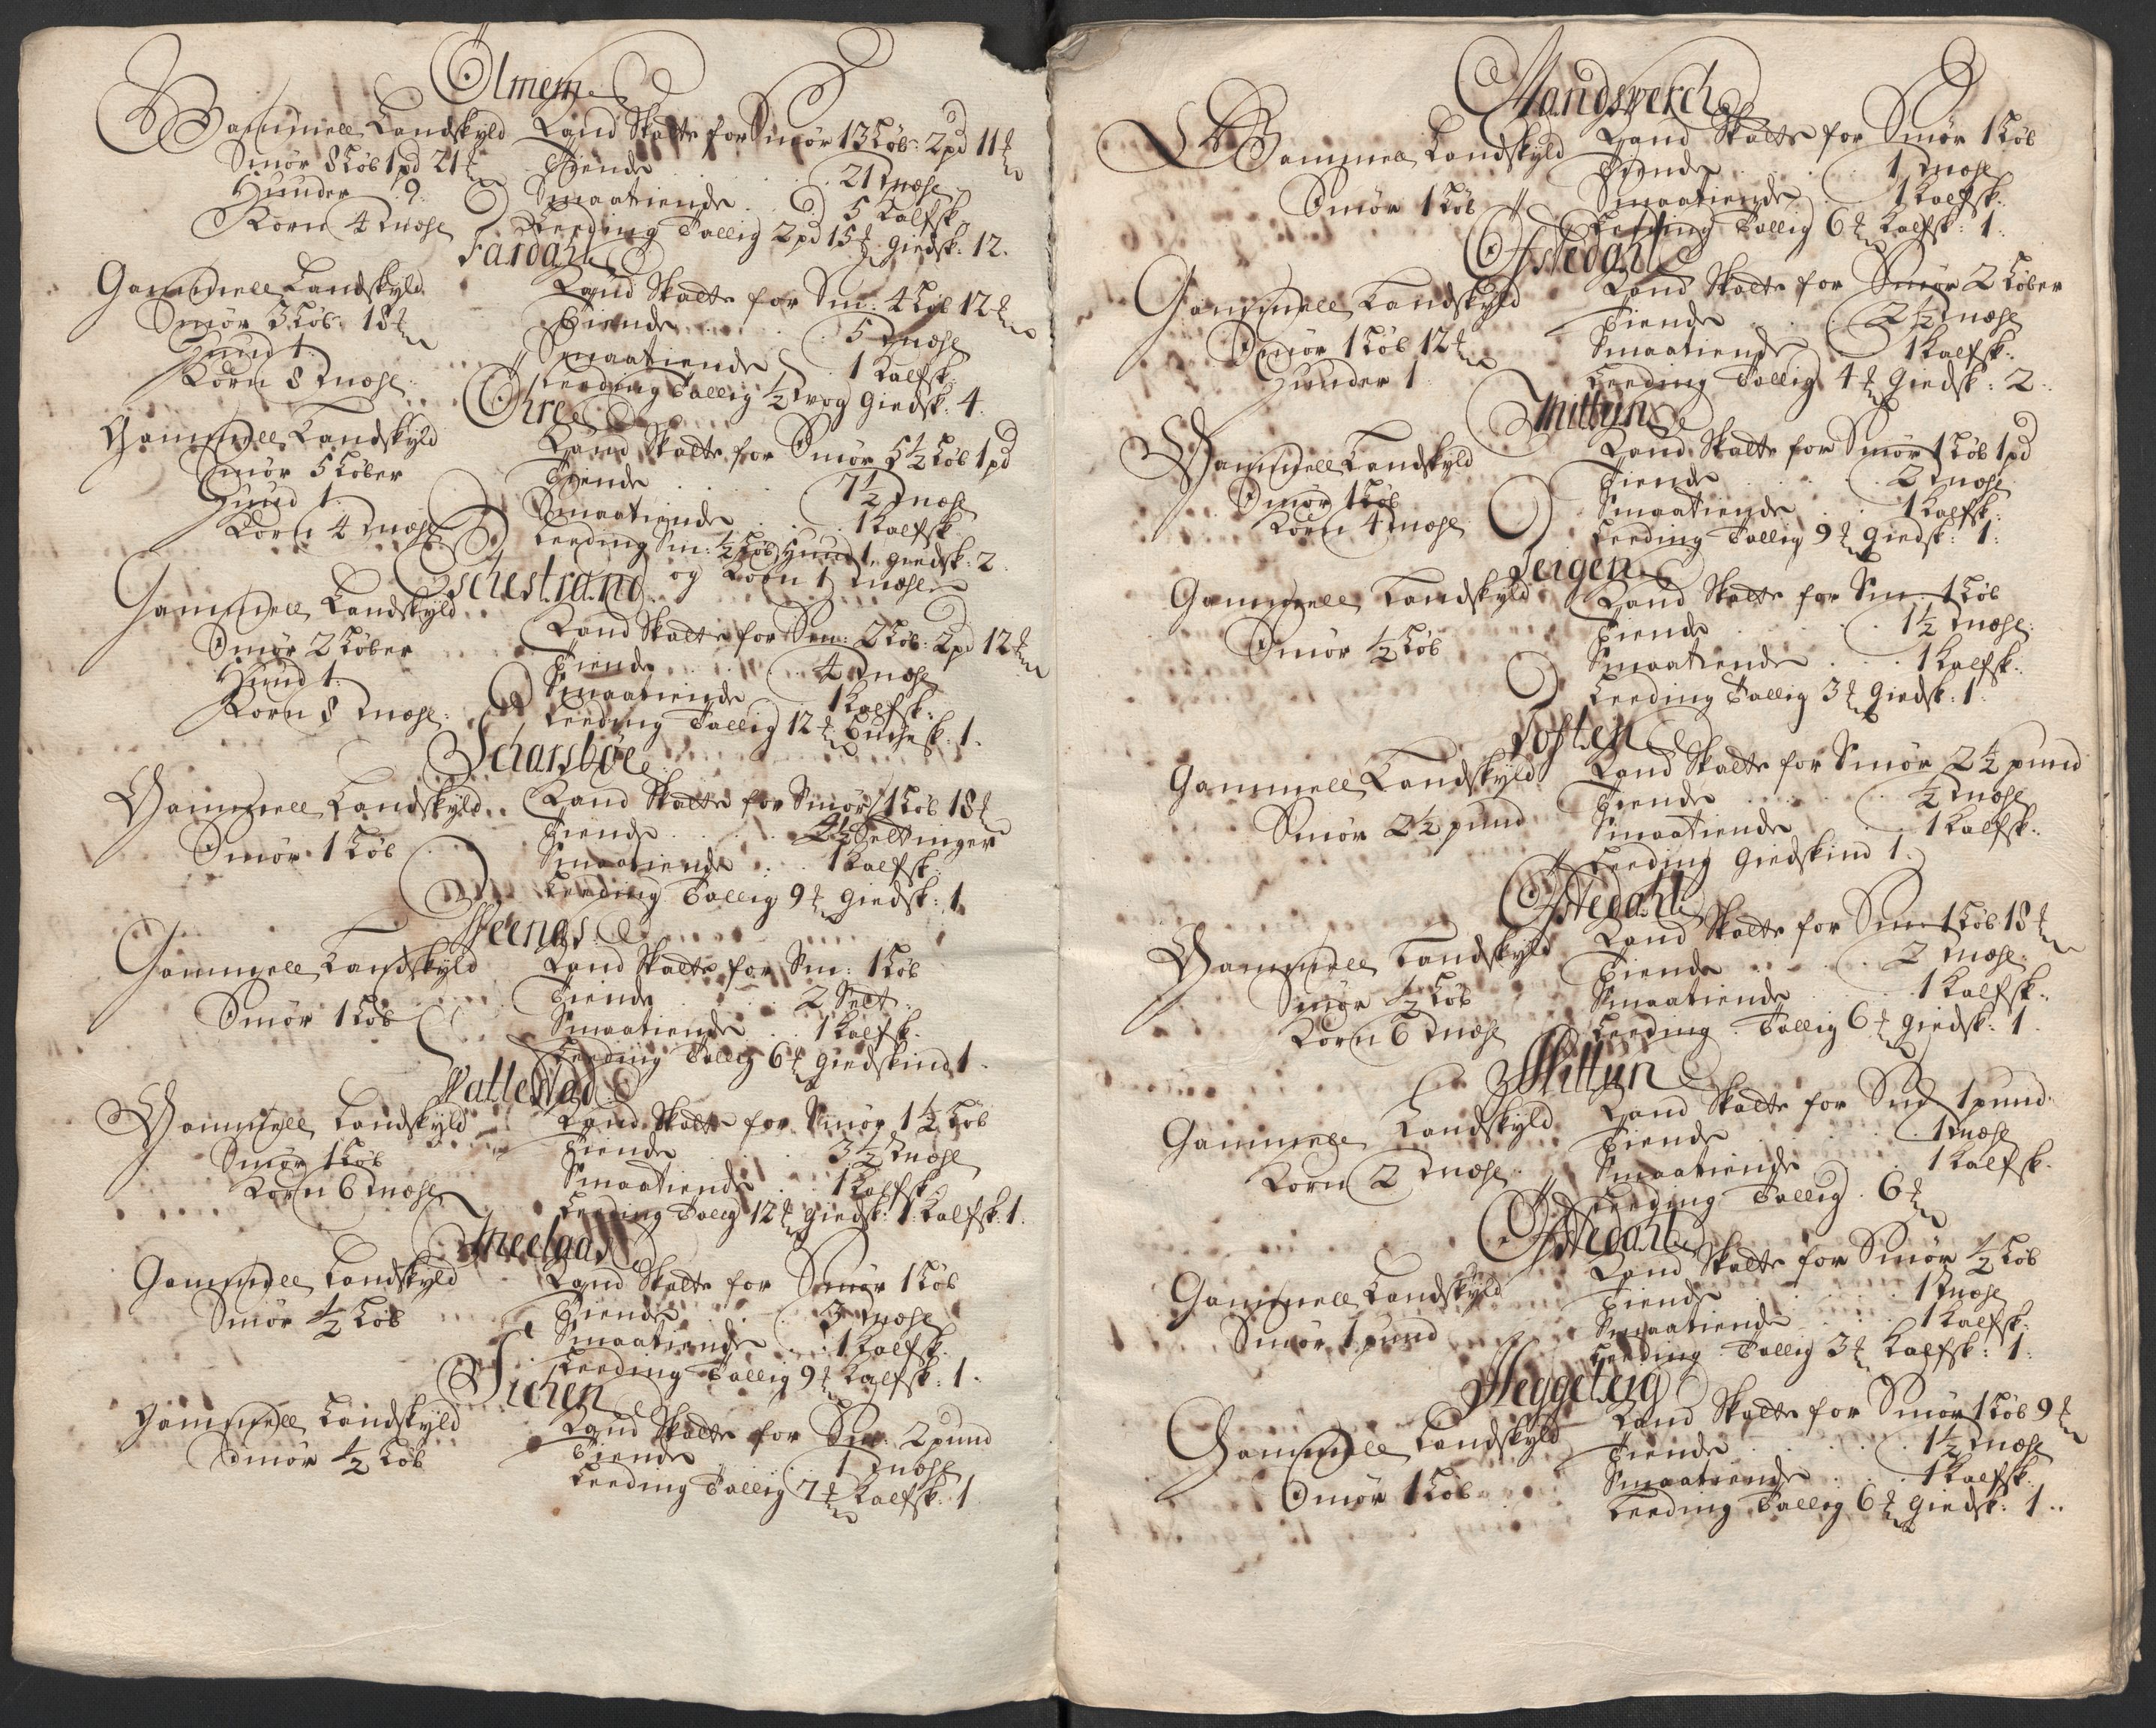 Olmem
Gammell Landskyld
Smör 8 Löb 1 pd 21 ℔
Huuder 9
Korn 4 mæhl
Land Skatte for Smör 13 Löb: 2 pd 11 ℔
Tiende 21 mæhl
Smaatiende 5 Kalfsk:
Leeding Tallig 2 pd 15 ℔ giedsk: 12.
Fardahl
Gammell Landskyld
Smör 3 Löb: 18 ℔
Huud 1:
Korn 8 mæhl:
Land Skatte for Sm: 4 Löb 12 ℔
Tiende 5 mæhl
Smaatiende 1 Kalfsk:
Leeding Tallig ½ wog Giedsk: 4.
Ohre
Gammell Landskyld
Smör 5 Löber
Huud 1:
Korn 4 mæhl
Land Skatte for Smör 5½ Löb 1 pd
Tiende 7½ mæhl
Smaatiende 1 Kalfsk
Leeding Sm: ½ Löb Huud 1. giedsk: 2.
og Korn 1 mæhl
Eschestrand
Gammell Landskyld
Smör 2 Löber
Huud 1:
Korn 8 mæhl:
Land Skatte for Sm: 2 Löb: 2 pd 12 ℔
Tiende 4 mæhl
Smaatiende 1 Kalfsk:
Leeding Tallig 12 ℔ Buchesk: 1.
Scharsböe
Gammell Landskyld
Smör 1 Löb
Land Skatte for Smör 1 Löb 18 ℔
Tiende 4½ Seltinger
Smaatiende 1 Kalfsk:
Leeding Tallig 9 ℔ giedsk: 1.
Gammell Landskyld
Smör 1 Löb
Land Skatte for Sm: 1 Löb
Tiende 2 Selt:
Smaatiende 1 Kalfsk.
Leeding Tallig 6 ℔ giedskind 1.
Vallestad
Gammell Landskyld
Smör 1 Löb
Korn 6 mæhl
Land Skatte for Smör 1½ Löb
Tiende 3½ Mæhl
Smaatiende 1 Kalfsk
Leeding Tallig 12 ℔ giedsk: 1. Kalfsk: 1.
Gammell Landskyld
Smör ½ Löb
Land Skatte for Smör 1 Löb
Tiende 3 mæhl
Smaatiende 1 Kalfsk.
Leeding Tallig 9 ℔ Kalfsk: 1.
Gammell Landskyld
Smör ½ Löb
Land Skatte for Sm: 2 pund
Tiende 1 mæhl
Leeding Tallig 7 ℔ Kalfsk: 1
Mandsverch
Gammell Landskyld
Smör 1 Löb
Land Skatte for Smör 1 Löb
Tiende 1 mæhl
Smaatiende 1 Kalfsk:
Leeding Tallig 6 ℔ Kalfsk: 1.
Ofstedahl
Gammell Landskyld
Smör 1 Löb 12 ℔
Huuder 1
Land Skatte for Smör 2 Löber
Tiende 2½ mæhl
Smaatiende 1 Kalfsk:
Leeding Tallig 4 ℔ Giedsk: 2.
Mittun
Gammell Landskyld
Smör 1 Löb
Korn 4 mæhl
Land Skatte for Smör 1 Löb 1 pd
Tiende 2 mæhl
Smaatiende 1 Kalfsk:
Leeding Tallig 9 ℔ giedsk: 1:
Teigen
Gammell Landskyld
Smör ½ Löb
Land Skatte for Sm: 1 Löb
Tiende 1½ mæhl:
Smaatiende 1 Kalfsk:
Leeding Tallig 3 ℔ giedsk: 1.
Gammell Landskyld
Smör 2½ pund
Land Skatte for Smör 2½ pund
Tiende ½ mæhl
Smaatiende 1 Kalfsk:
Leeding Giedskind 1.
Ofstedahl
Gammell Landskyld
Smör ½ Löb
Korn 6 mæhl
Land Skatte for Sm: 1 Löb 18 ℔
Tiende 2 mæhl:
Smaatiende 1 Kalfsk:
Leeding Tallig 6 ℔ giedsk: 1.
Mittun
Gammell Landskyld
Korn 2 mæhl
Land Skatte for Sm: 1 pund.
Tiende 1 mæhl
Smaatiende 1 Kalfsk.
Leeding Tallig 6 ℔
Ofstedahl
Gammell Landskyld
Smör 1 pund
Land Skatte for Smör ½ Löb
Tiende 1 Mæhl
Smaatiende 1 Kalfsk:
Leeding Tallig 3 ℔ Kalfsk: 1.
Heggeteig
Gammell Landskyld
Smör 1 Löb
Land Skatte for Smör 1 Löb 9 ℔
Tiende 1½ mæhl
Smaatiende 1 Kalfsk:
Leeding Tallig 6 ℔ giedsk: 1.